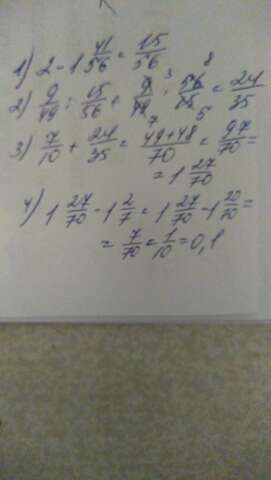 1) 2 - 1 41/56 = 15/56
2) 9/49 : 15/56 = 9/49 · 56/15 = 24/35
3 8
7 5
3) 7/10 + 24/35 = (49+48)/70 = 97/70 =
= 1 27/70
4) 1 27/70 - 1 2/7 = 1 27/70 - 1 20/70 =
= 7/70 = 1/10 = 0,1